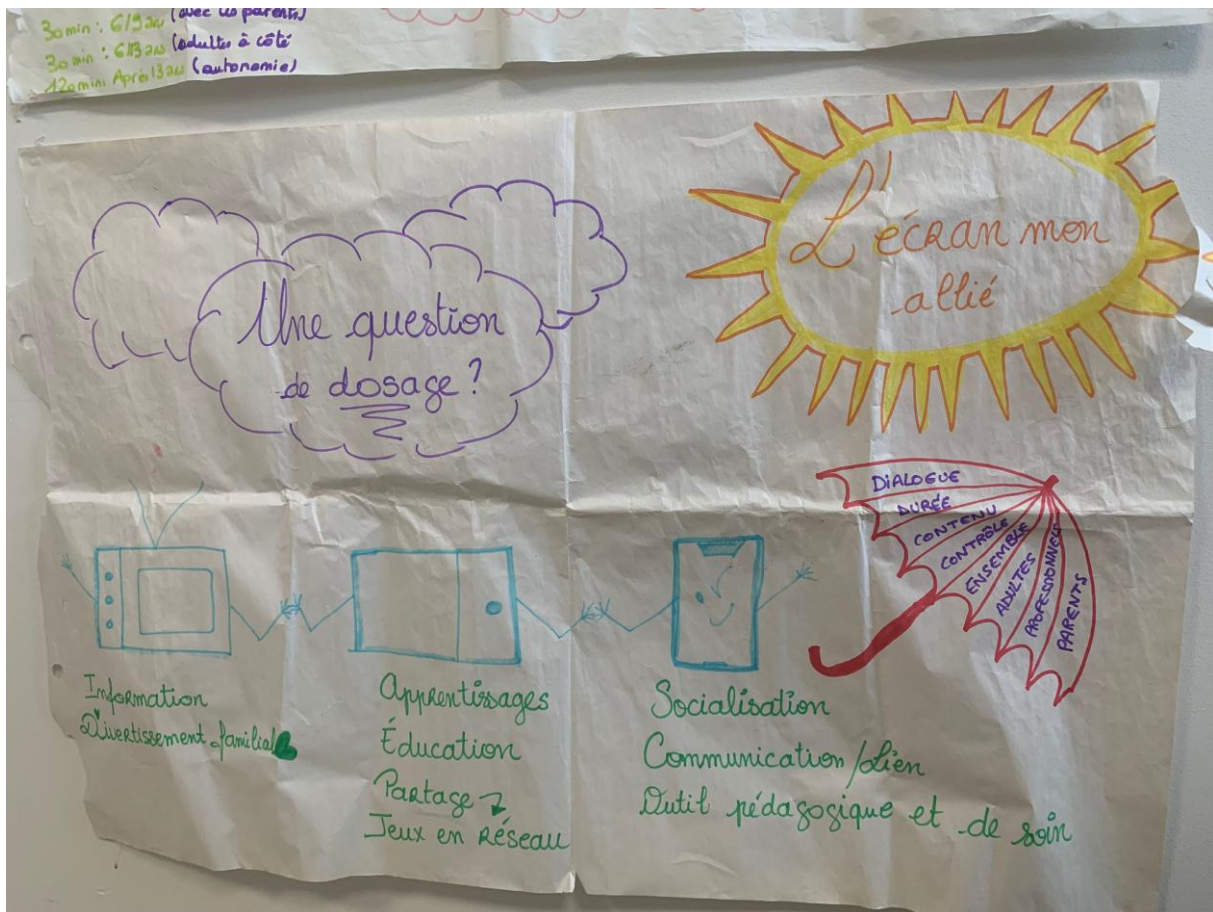 (avec les parents)
30min : 6/9 ans
30 min : 6/13 ans (adultes à côté
120 mini Après 13 ans (autonomie)
Une question
de dosage ?
L'écran mon
allié
DIALOGUE
DURÉE
CONTENU
CONTRÔLE
ENSEMBLE
ADULTES
PROFESSIONNELS
PARENTS
Information
Divertissement familial
Apprentissages
Éducation
Partage
Jeux en réseau
Socialisation
Communication/Lien
Outil pédagogique et de soin